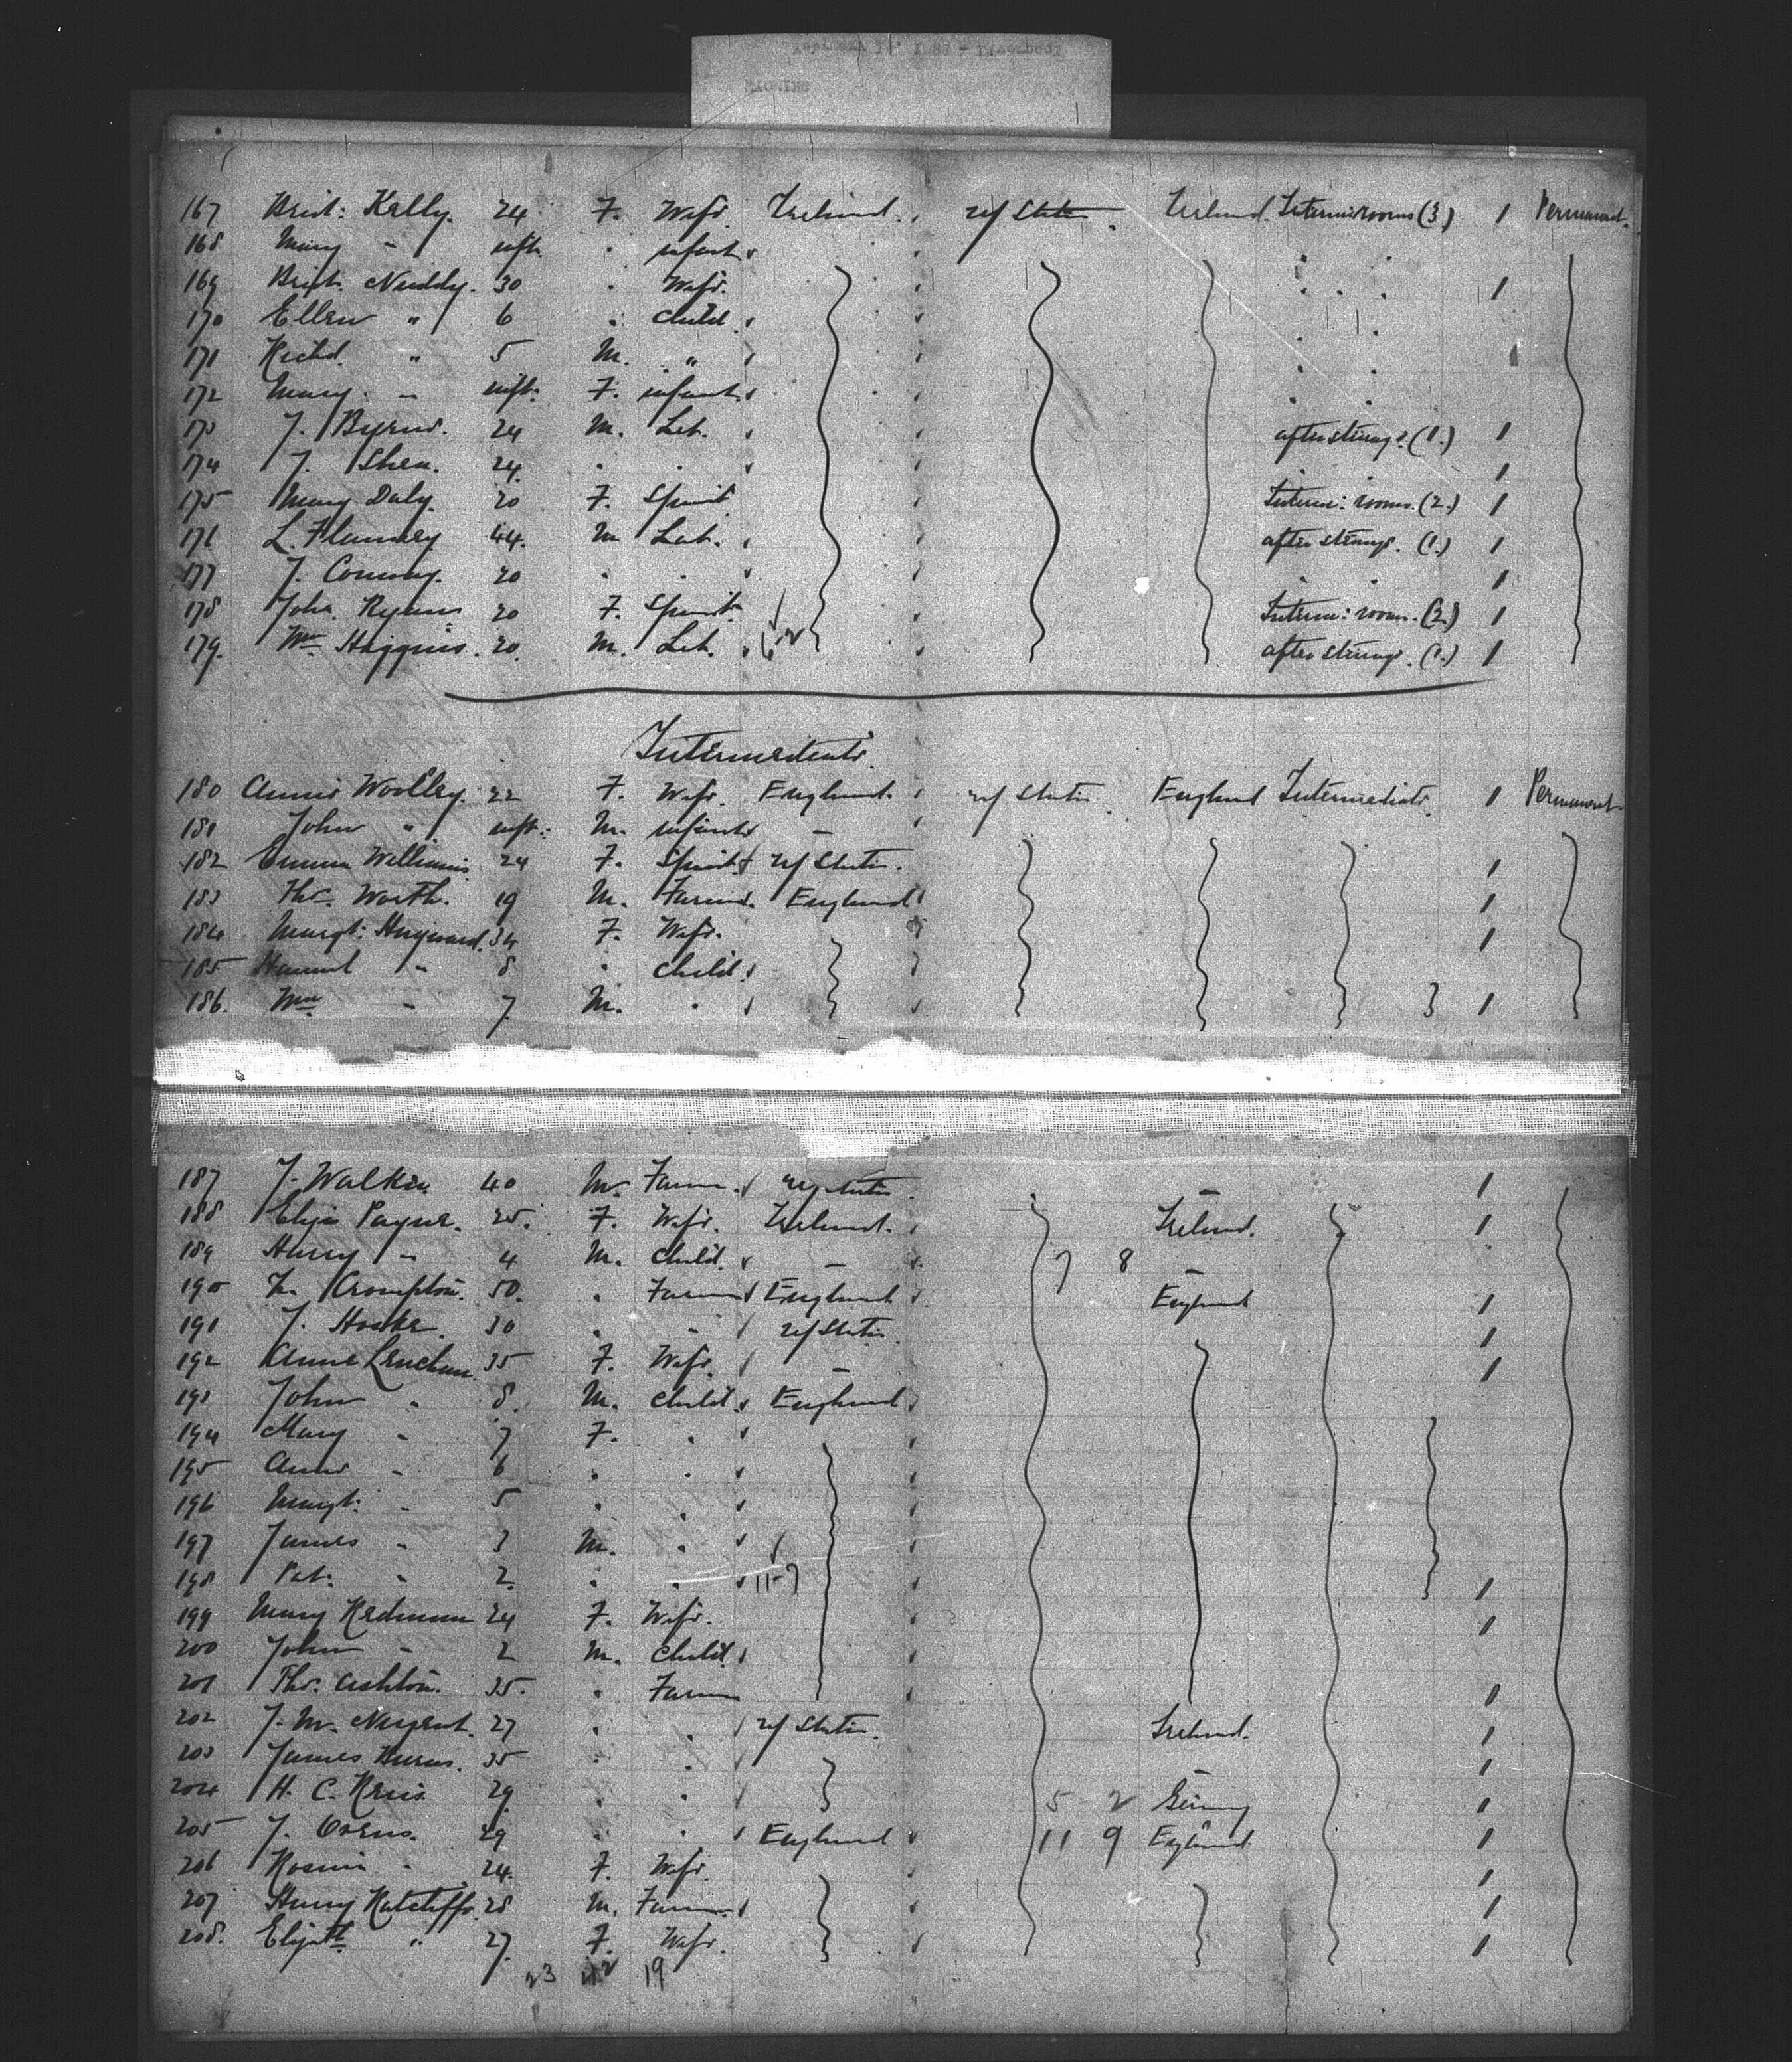 167 Brid: Kelly. 24 F. Wife Ireland. u/ States Ireland Interm: rooms (3) 1 Permanent.
168 Mary " inft. . infant
169 Brid. 30 . Wife. . . . 1
170 Ellen " 6 . Child
171 Richd. " 5 M. "
172 Mary. " inft: F. infant
173 J. Byrne. 24 M. Lab. after steerage (1.) 1
174 J. Shea. 24. . . 1
175 Mary Daly. 20 F. Spinst. Interm: rooms. (2.) 1
176 L. 44. M Lab. after steerage. (1.) 1
177 J. Conway. 20 . . . . 1
178 Joha. 20 F. Spinst. Interm: rooms. (2) 1
179. Wm Higgins. 20. M. Lab. after steerage. (1.) 1
Intermediate.
180 Annie Woolley. 22 F. Wife. England. u/ States. England Intermediate. 1 Permanent
181 John " inft: M. infant "
182 Emma Williams 24 F. Spinst u/ States. 1
183 Thos. Worth. 19 M. Farmer. England 1
184 Margt: Hayward. 34 F. Wife. 1
185 " 8 . Child.
186. Wm " 7 M. . 1
187 J. 40 M. Farmer. u/ states " 1
188 Eliza Payne. 25. F. Wife. Ireland. Ireland. 1
189 Harry " 4 M. Child. " 7 8 "
190 Crompton. 50. . Farmer England England 1
191 J. 30 . " u/ States 1
192 Anne Lenehan 35 F. Wife. " 1
193 John " 8. M. Child. England
194 Mary " 7 F. .
195 Annie " 6 . .
196 Margt: " 5 . .
197 James " 3 M. .
198 Pat: " 2. . . 11-7 1
199 Mary Redman 24 F. Wife. 1
200 John " 2 M. Child.
201 Thos. Ashton. 35. . Farmer 1
202 J. M. Nugent. 27 . . u/ States. Ireland. 1
203 James Burns. 35 . . " 1
204 H. C. 29. . . 5 2 Germy 1
205 J. 29 . . England 11 9 England. 1
206 " 24. F. Wife. 1
207 Henry Ratcliffe. 28 M. Farmer. 1
208. Elizath " 27. F. Wife. 1
23 19